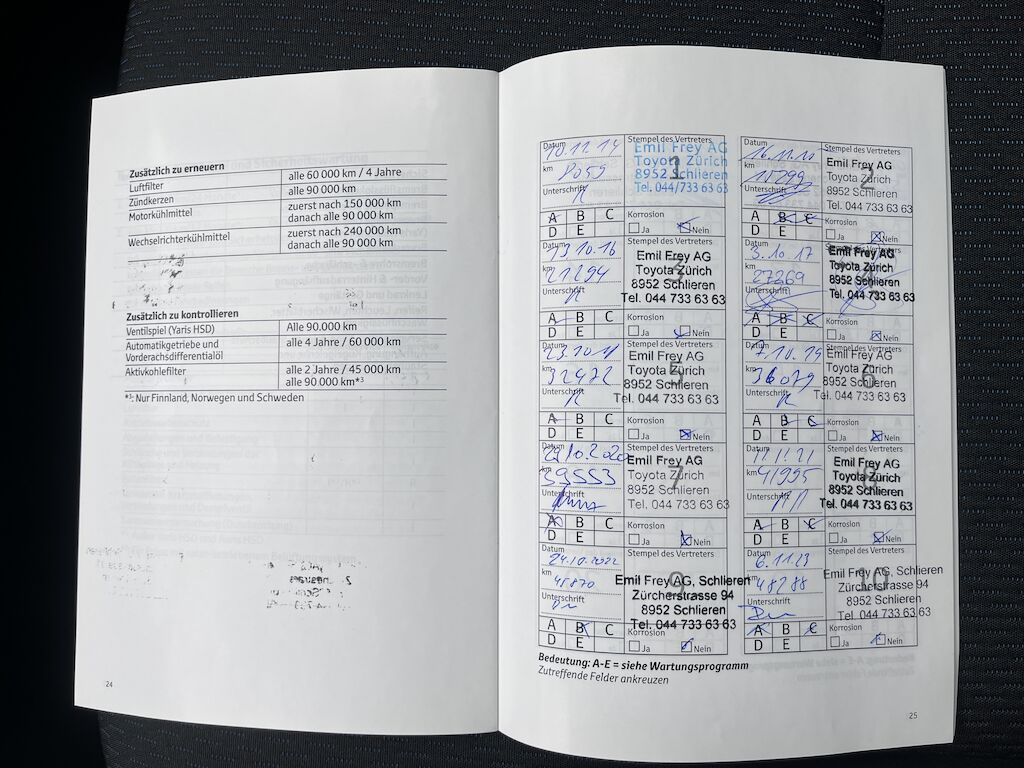 Zusätzlich zu erneuern
Luftfilter alle 60 000 km / 4 Jahre
Zündkerzen alle 90 000 km
Motorkühlmittel zuerst nach 150 000 km
danach alle 90 000 km
Wechselrichterkühlmittel zuerst nach 240 000 km
danach alle 90 000 km
Zusätzlich zu kontrollieren
Ventilspiel (Yaris HSD) Alle 90.000 km
Automatikgetriebe und alle 4 Jahre / 60 000 km
Vorderachsdifferentialöl
Aktivkohlefilter alle 2 Jahre / 45 000 km
alle 90 000 km*³
*³: Nur Finnland, Norwegen und Schweden
24
Datum 10.11.14
km 8059
Unterschrift
Stempel des Vertreters
1
Emil Frey AG
Toyota Zürich
8952 Schlieren
Tel. 044/733 63 63
A B C
D E
Korrosion
Ja Nein
Datum
km 15299
Unterschrift
Stempel des Vertreters
2
Emil Frey AG
Toyota Zürich
8952 Schlieren
Tel. 044 733 63 63
A B C
D E
Korrosion
Ja Nein
Datum 13.10.16
km 21294
Unterschrift
Stempel des Vertreters
3
Emil Frey AG
Toyota Zürich
8952 Schlieren
Tel. 044 733 63 63
A B C
D E
Korrosion
Ja Nein
Datum 3.10.17
km 27269
Unterschrift
Stempel des Vertreters
4
Emil Frey AG
Toyota Zürich
8952 Schlieren
Tel. 044 733 63 63
A B C
D E
Korrosion
Ja Nein
Datum
km 32472
Unterschrift
Stempel des Vertreters
5
Emil Frey AG
Toyota Zürich
8952 Schlieren
Tel. 044 733 63 63
A B C
D E
Korrosion
Ja Nein
Datum 7.10.19
km 36079
Unterschrift
Stempel des Vertreters
6
Emil Frey AG
Toyota Zürich
8952 Schlieren
Tel. 044 733 63 63
A B C
D E
Korrosion
Ja Nein
Datum 29.10.2020
km 39553
Unterschrift
Stempel des Vertreters
7
Emil Frey AG
Toyota Zürich
8952 Schlieren
Tel. 044 733 63 63
A B C
D E
Korrosion
Ja Nein
Datum 11.11.21
km 41995
Unterschrift
Stempel des Vertreters
8
Emil Frey AG
Toyota Zürich
8952 Schlieren
Tel. 044 733 63 63
A B C
D E
Korrosion
Ja Nein
Datum 24.10.2022
km 45870
Unterschrift
Stempel des Vertreters
9
Emil Frey AG, Schlieren
Zürcherstrasse 94
8952 Schlieren
Tel. 044 733 63 63
A B C
D E
Korrosion
Ja Nein
Datum 6.11.23
km 48288
Unterschrift
Stempel des Vertreters
10
Emil Frey AG, Schlieren
Zürcherstrasse 94
8952 Schlieren
Tel. 044 733 63 63
A B C
D E
Korrosion
Ja Nein
Bedeutung: A-E = siehe Wartungsprogramm
Zutreffende Felder ankreuzen
25